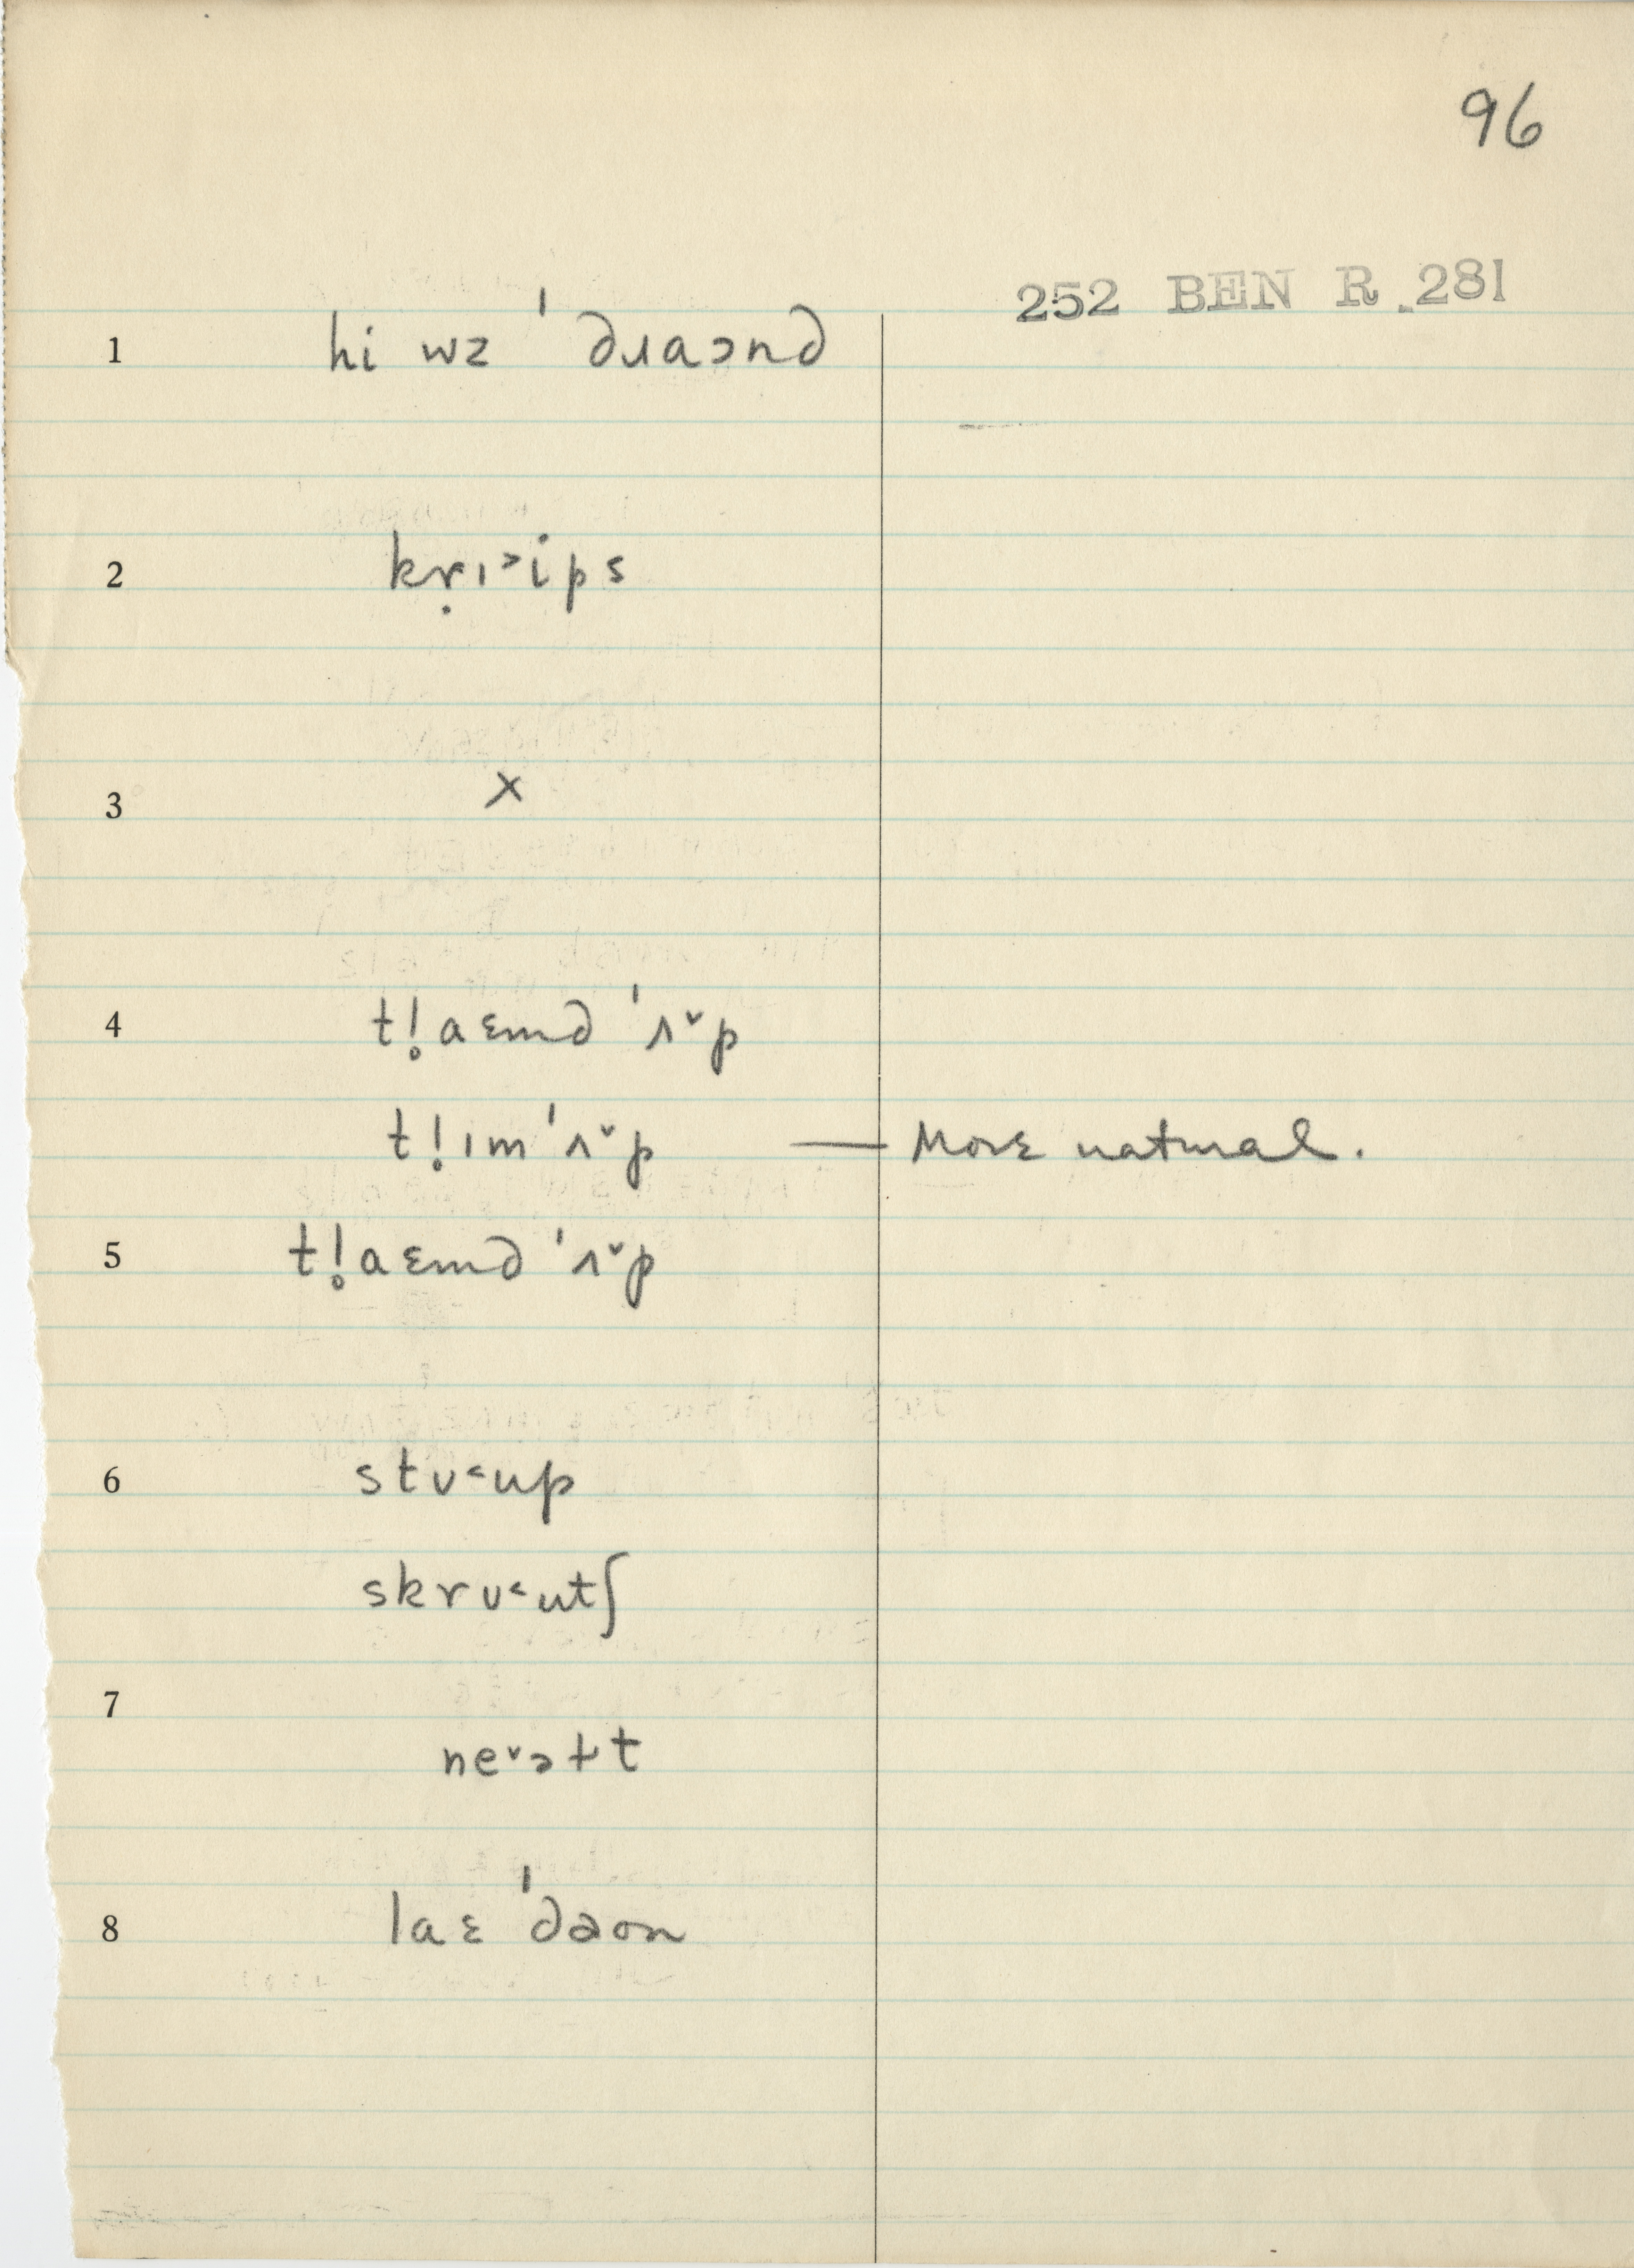 96
252 BEN R .281
1 hi wz ˈdɹaɔnd
2 kṛɪ˃ips
3 x
4 t!̥aɛmd ˈʌ˅p
t!̣ɪm ˈʌ˅p — More natural.
5 t!̥aɛmd ˈʌ˅p
6 stʋ˂up
skrʋ˂utʃ
7
ne˅əɫt
8 laɛ ˈdəon